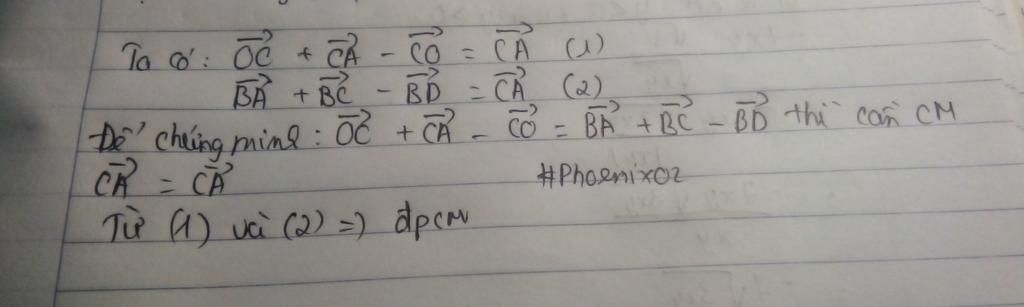 Ta có: \overrightarrow{OC} + \overrightarrow{CA} - \overrightarrow{CO} = \overrightarrow{CA} (1)
\overrightarrow{BA} + \overrightarrow{BC} - \overrightarrow{BD} = \overrightarrow{CA} (2)
Để chứng minh: \overrightarrow{OC} + \overrightarrow{CA} - \overrightarrow{CO} = \overrightarrow{BA} + \overrightarrow{BC} - \overrightarrow{BD} thì cần CM
\overrightarrow{CA} = \overrightarrow{CA} #Phoenix02
Từ (1) và (2) => đpCM